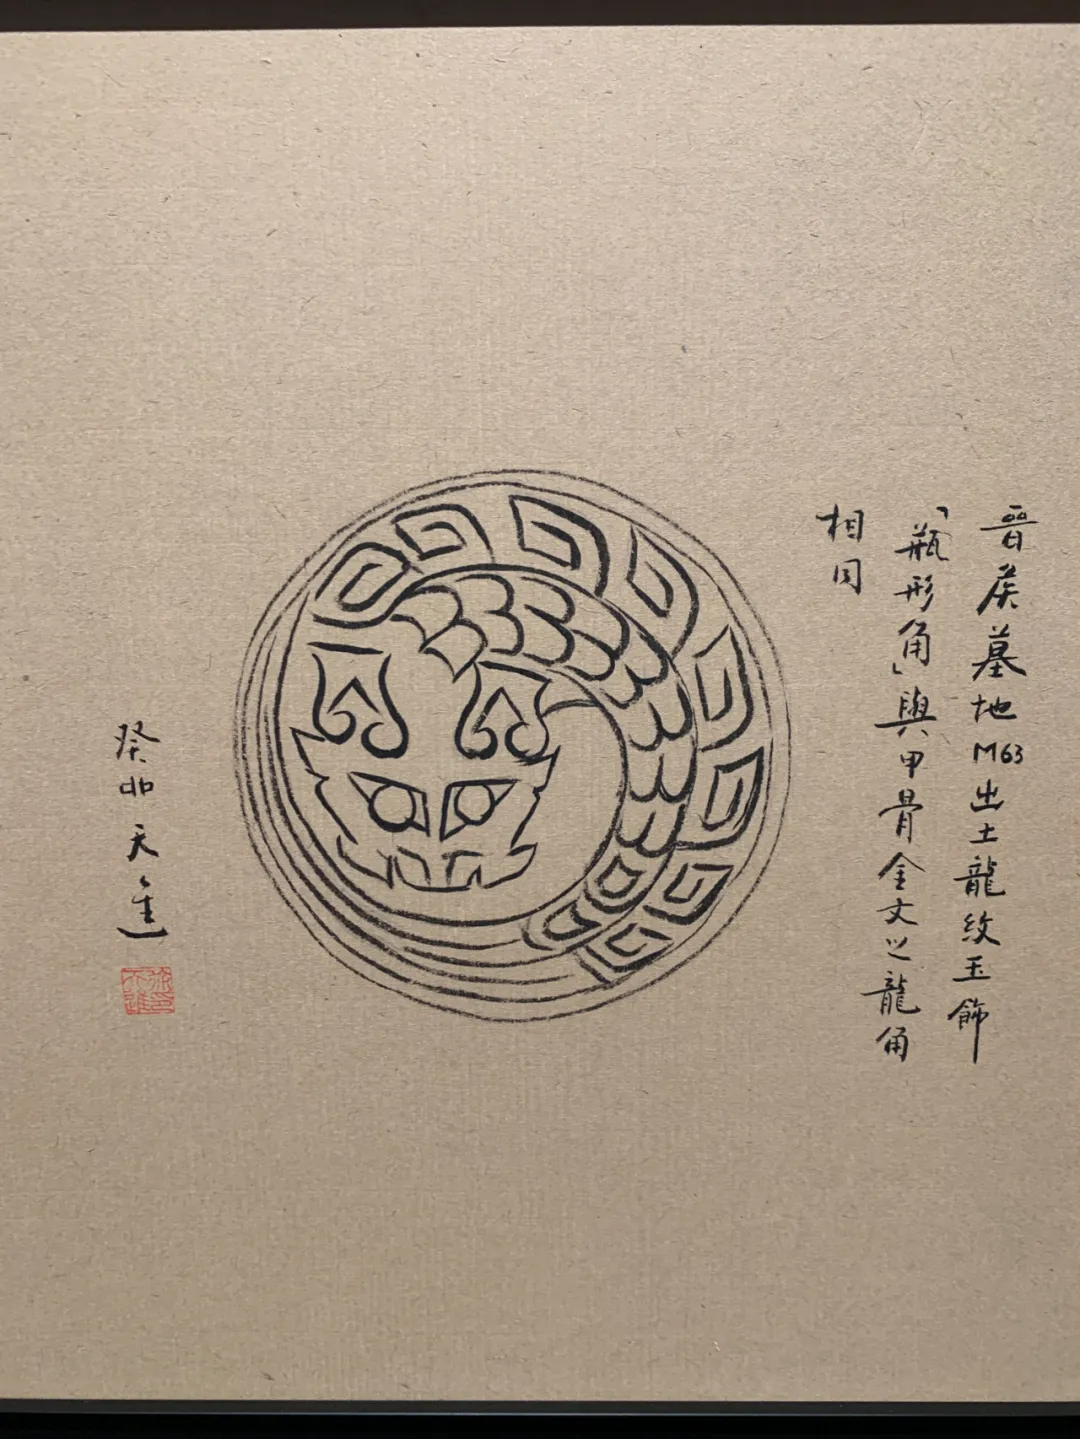 晉侯墓地M63出土龍紋玉飾
「瓶形角」與甲骨金文之龍角
相同
癸卯天進